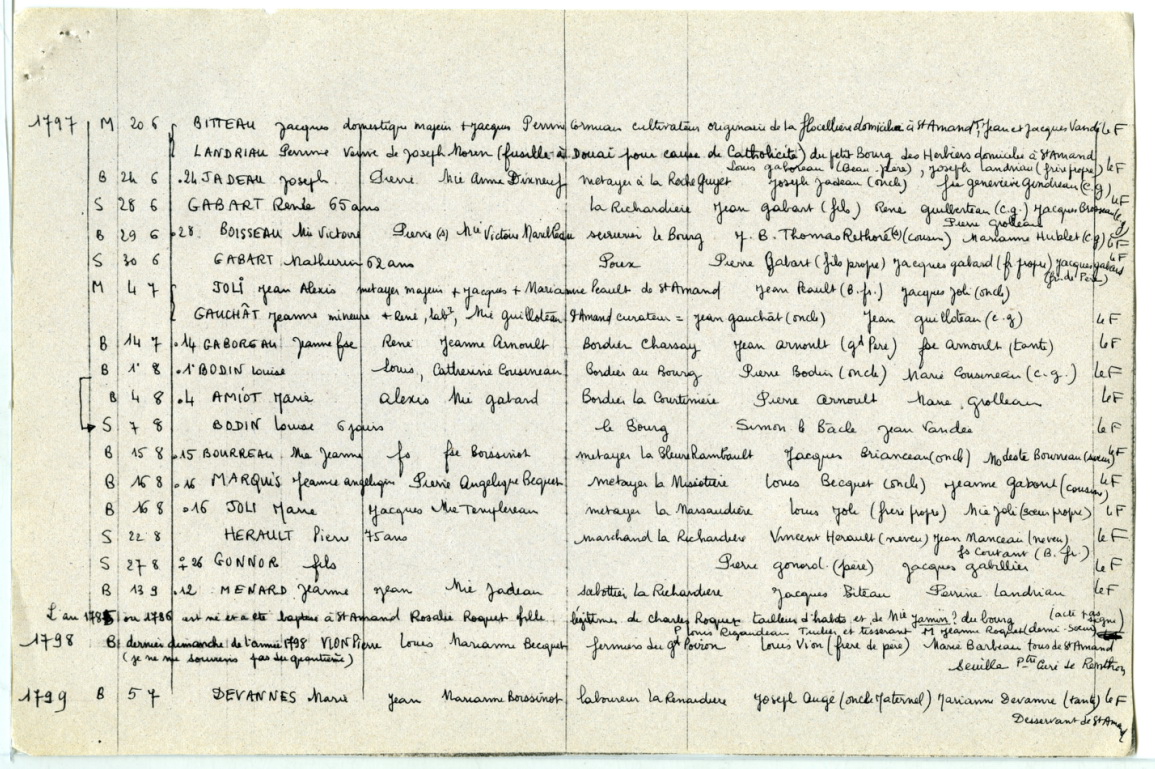 1797 M 20 6 BITTEAU Jacques domestique majeur + Jacques Perrine Cormuau cultivateur originaire de la flocellière domicilié à St Amand ? Jean et Jacques Vandé le F
LANDRIAU Perrine Veuve de Joseph Morin (fusillé à Douai pour cause de Catholicité) du petit Bourg des Herbiers domicilié à St Amand
Louis gaboreau (Beau-père), Joseph Landriau (frère propre) le F
B 24 6 .24 JADEAU Joseph Pierre Mie Anne Dixneuf metayer à la Roche Guyet Joseph Jadeau (oncle) fse geneviève Gendreau (c.g)
S 28 6 GABART Renée 65 ans la Richardière Jean gabart (fils) René guilberteau (c.g.) Jacques le F
Pierre Grolleau
B 29 6 .28 BOISSEAU Mie Victoire Pierre (s) Mie Victoire serrurier le Bourg J. B. Thomas Rethoré (s) (cousin) Marianne Hublet (c.g) le F
S 30 6 GABART Mathurin 62 ans Poux Pierre Gabart (fils propre) Jacques gabard (fr propre) Jacques gabard le F
(fr. de Père)
M 4 7 JOLI Jean Alexis metayer majeur + Jacques + Marianne Peault de St Amand Jean Rault (B. fr.) Jacques Joli (oncle)
GAUCHÂT Jeanne mineure + René, labr, Mie guilloteau St Amand curateur = Jean gauchât (oncle) Jean guilloteau (c.g) le F
B 14 7 .14 GABOREAU Jeanne fse René Jeanne Arnoult Bordier Charsay Jean arnoult (gd Père) fse Arnoult (tante) le F
B 1° 8 .1° BODIN Louise Louis, Catherine Cousineau Bordier au Bourg Pierre Bodin (oncle) Marie Cousineau (c.g.) le F
B 4 8 .4 AMIOT Marie Alexis Mie gabard Bordier La Courtinière Pierre Arnoult Marie Grolleau le F
S 7 8 BODIN Louise 6 jours le Bourg Simon b Bâcle Jean Vandée le F
B 15 8 .15 BOURREAU Mie Jeanne fs fse Boissinot metayer La Bleure Rambault Jacques Brianceau (oncle) Modeste Bourreau (sœur) le F
B 16 8 .16 MARQUIS Jeanne angelique Pierre Angelique Becquet metayer la Misistière Louis Becquet (oncle) Jeanne Gaborit (cousine) le F
B 16 8 .16 JOLI Marie Jacques Mie Templereau metayer La Marsaudière Louis Joli (frère propre) Mie Joli (sœur propre) le F
S 22 8 HERAULT Pierre 75 ans marchand la Richardière Vincent Herault (neveu) Jean Manceau (neveu)
fs Coutant (B. fr.)
S 27 8 26 GONNOR fils Pierre gonord (père) Jacques gabillier le F
B 13 9 .12 MENARD Jeanne Jean Mie Jadeau sabottier la Richardière Jacques Biteau Perrine Landriau le F
L'an 1785 ou 1786 est né et a été baptisé à St Amand Rosalie Roquet fille légitime de charles Roquet tailleur d'habits et de Mie Jamin ? du bourg (acte pas signé)
P Louis Rigaudeau Tuilier et tisserant M Jeanne Roquet (demi-sœur)
1798 B dernier dimanche de l'année 1798 VION Pierre Louis Marianne Becquet fermiers du gd Poiron Louis Vion (frère de père) Marie Barbeau tous de St Amand
(je ne me souviens pas du quantième) Seuilla Ptre Curé de
1799 B 5 7 DEVANNES Marie Jean Marianne Boissinot laboureur La Renardière Joseph Augé (oncle Maternel) Marianne Devanne (tante) le F
Desservant de St Amand